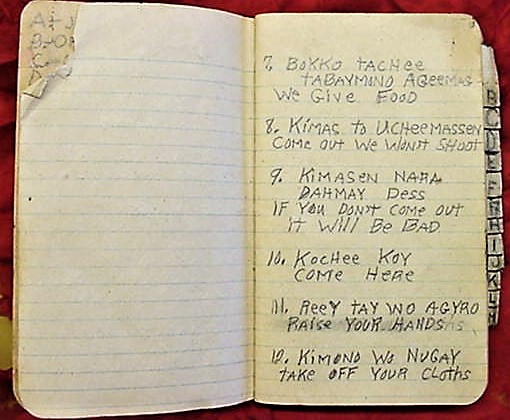 A-J
B-O
C-
D
7. BOKKO TACHEE
TABAYMONO AGEEMAS
WE GIVE FOOD
8. KIMAS TO UCHEEMASSEN
COME OUT WE WON'T SHOOT
9. KIMASEN NARA
DAHMAY DESS
IF YOU DON'T COME OUT
IT WILL BE BAD
10. KOCHEE KOY
COME HERE
11. REEY TAY WO AGYRO
RAISE YOUR HANDS
12. KIMONO WO NUGAY
TAKE OFF YOUR CLOTHS
B
C
D
E
F
H
I
J
K